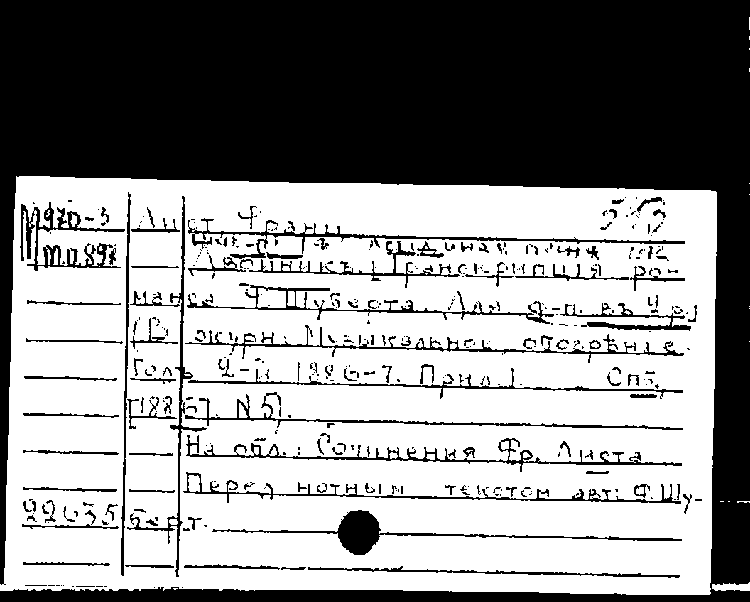 М970-3 Лист, Франц
Лебединая песня
Мт.п.897 Двойникъ. [Транскрипція ро-
манса Ф. Шуберта. Для ф-п. въ 4 р.]
(В журн.: Музыкальное обозрѣніе.
Годъ 2-й. 1886-7. Прил.). Спб,
[1886]. N 5).
На обл.: Сочинения Фр. Листа
Перед нотным текстом авт: Ф. Шу-
22635 берт.